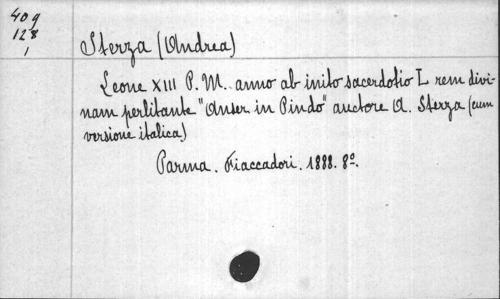 409
128
1
Sterza (Andrea)
Leone XIII P. M. anno ab inito sacerdotio L rem divi-
nam perlitante "Anser in Pindo" auctore A. Sterza (cum
versione italica)
Parma. Fiaccadori. 1888. 8º.